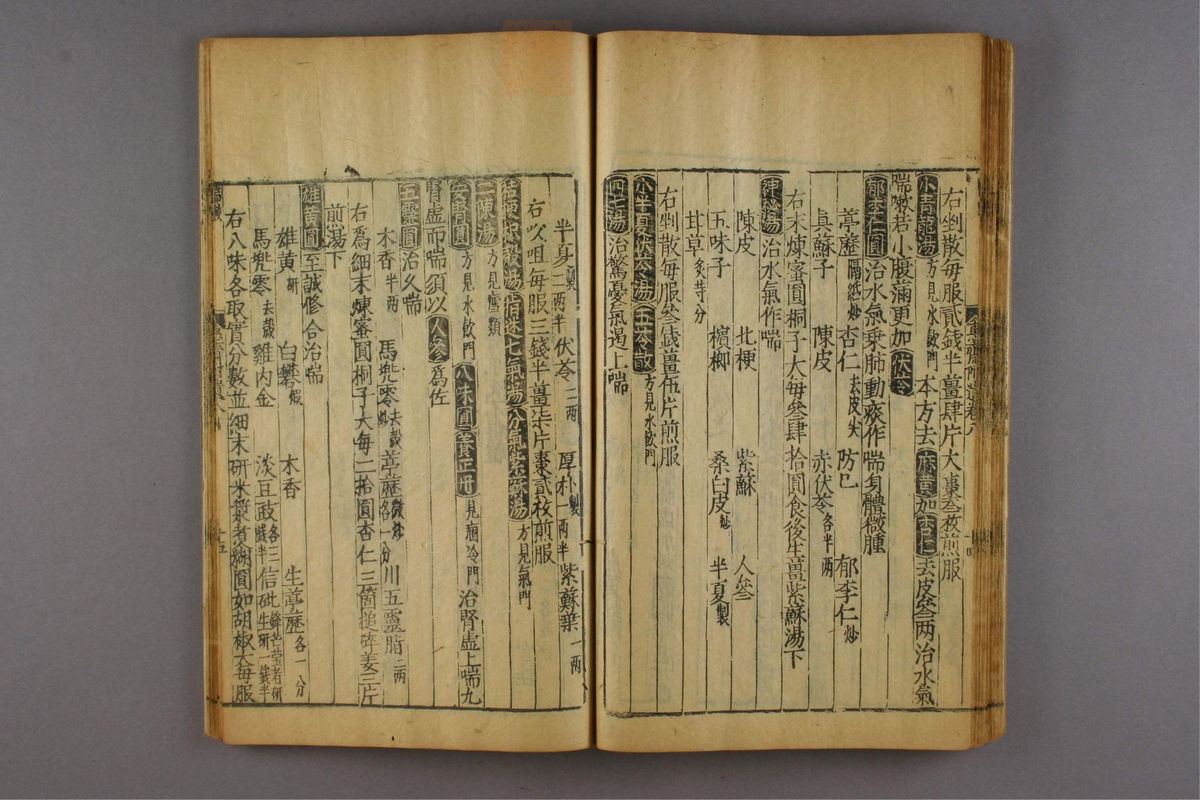 右剉散每服貳錢半薑肆片大棗叄枚煎服
小青龍湯方見水飲門本方去麻黃加杏仁去皮叄两治水氣
喘嗽若小腹滿更加伏苓
郁李仁圓治水氣乗肺動痰作喘身體微腫
葶藶隔紙炒 杏仁去皮尖 防巳 郁李仁炒
真蘇子 陳皮 赤伏苓各半两
右末煉蜜圓桐子大每叄肆拾圓食後生薑紫蘇湯下
神秘湯治水氣作喘
陳皮 北梗 紫蘇 人參
五味子 檳榔 桑白皮炒 半夏製
甘草炙等分
右剉散每服叄錢薑伍片煎服
小半夏茯苓湯五苓散方見水飲門
四七湯治驚憂氣遏上喘
半夏製二两半 伏苓二两 厚朴製一两半 紫蘇葉一两
右㕮咀每服三錢半薑柒片棗貳枚煎服
桔梗枳殼湯指迷七氣湯分氣紫蘇湯方見氣門
二陳湯方見瘧類
安腎圓方見水飲門八味圓養正丹見痼冷門治腎虛上喘九
腎虛而喘須以人參爲佐
五靈圓治久喘
木香半两 馬兠零去殼炒 葶藶微炒各一分 川五靈脂二两
右爲細末煉蜜圓桐子大每二拾圓杏仁三箇搥碎姜三片
前湯下
雄黃圓至誠修合治喘
雄黃研 白礬煅 木香 生葶藶各一八分
馬兠零去殼 雞内金 淡豆豉各三錢半 信砒鋒芒瑩者研生研一錢半
右八味各取實分數並細末研米飲者糊圓如胡椒大每服